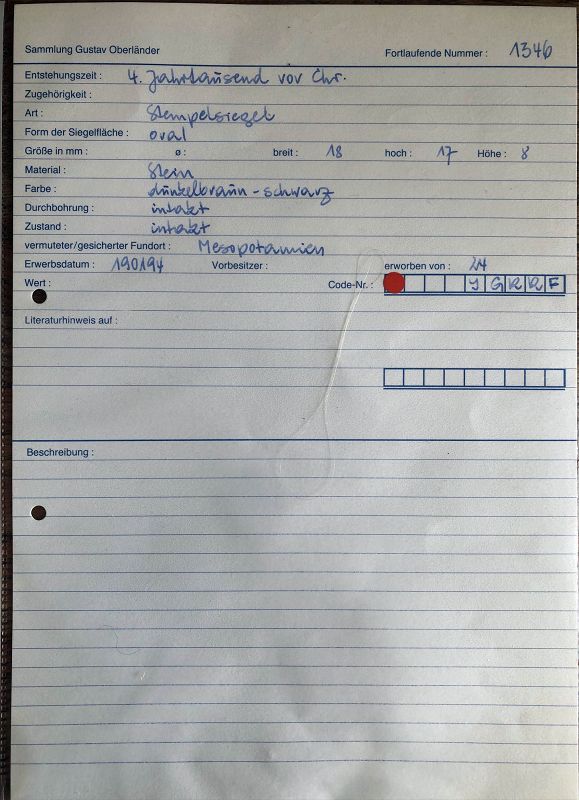 Sammlung Gustav Oberländer Fortlaufende Nummer : 1346
Entstehungszeit : 4. Jahrtausend vor Chr.
Zugehörigkeit :
Art : Stempelsiegel
Form der Siegelfläche : oval
Größe in mm : ø : breit : 18 hoch : 17 Höhe : 8
Material : Stein
Farbe : dunkelbraun - schwarz
Durchbohrung : intakt
Zustand : intakt
vermuteter/gesicherter Fundort : Mesopotamien
Erwerbsdatum : 190194 Vorbesitzer : erworben von :
Wert : Code-Nr. : G R R F
Literaturhinweis auf :
Beschreibung :